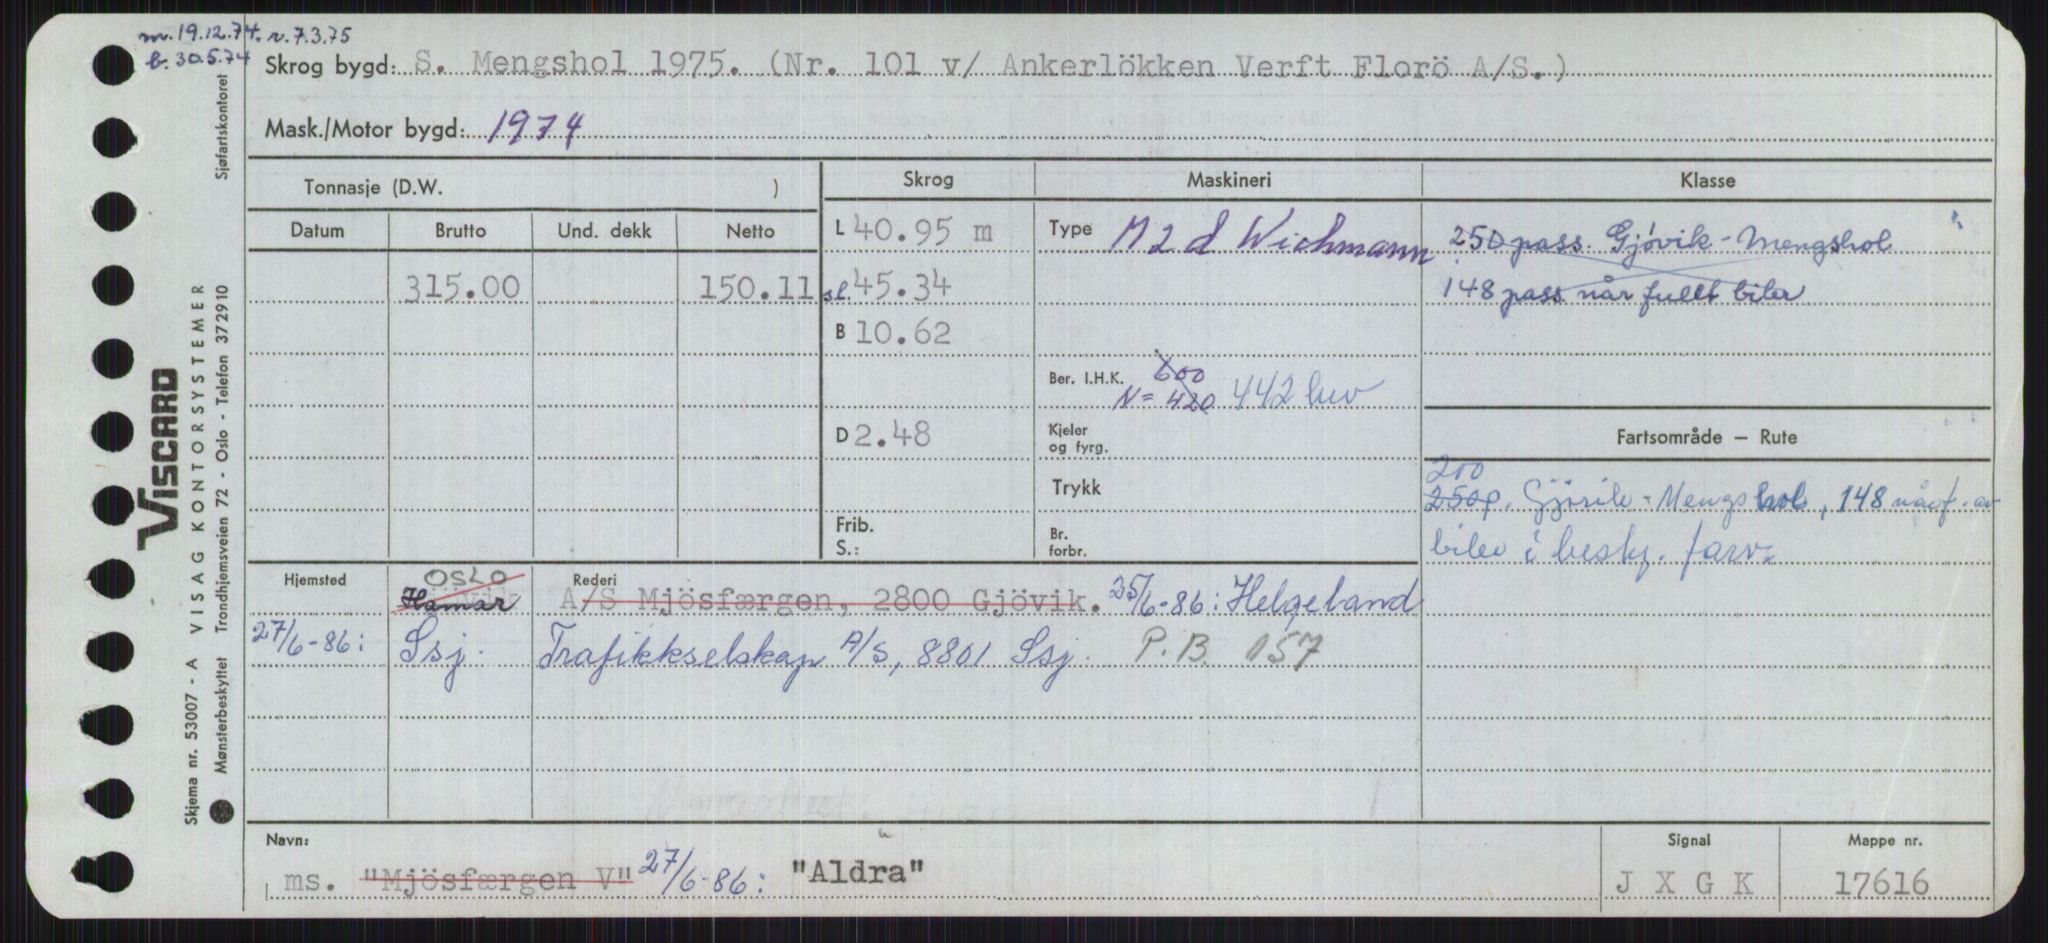 m. 19.12.74. r. 7.3.75
b. 30.5.74
Skrog bygd: S. Mengshol 1975. (Nr. 101 v/ Ankerlökken Verft Florö A/S.)
Mask./Motor bygd: 1974
Tonnasje (D.W. )
Skrog
Maskineri
Klasse
Datum Brutto Und. dekk Netto
L 40.95 m
Type M 2 d Wichmann
250 pass. Gjövik - Mengshol
315.00 150.11
sl. 45.34
148 pass når fullt biler
B 10.62
Ber. I.H.K. 600
N= 420 442 luv
D 2.48
Kjeler og fyrg.
Trykk
Frib. S.:
Br. forbr.
Fartsområde — Rute
200
250 p. Gjövik - Mengshol, 148 når f. av
biler i besky. farv.
Hjemsted OSLO
Hamar
Rederi
A/S Mjösfærgen, 2800 Gjövik. 25/6-86: Helgeland
27/6-86: Ssj. Trafikkselskap A/S, 8801 Ssj. P.B. 157
Navn:
ms. "Mjösfærgen V" 27/6-86: "Aldra"
Signal
J X G K
Mappe nr.
17616
VISCARD
VISAG KONTORSYSTEMER
Trondhjemsveien 72 - Oslo - Telefon 372910
Sjøfartskontoret
Skjema nr. 53007 - A
Mønsterbeskyttet